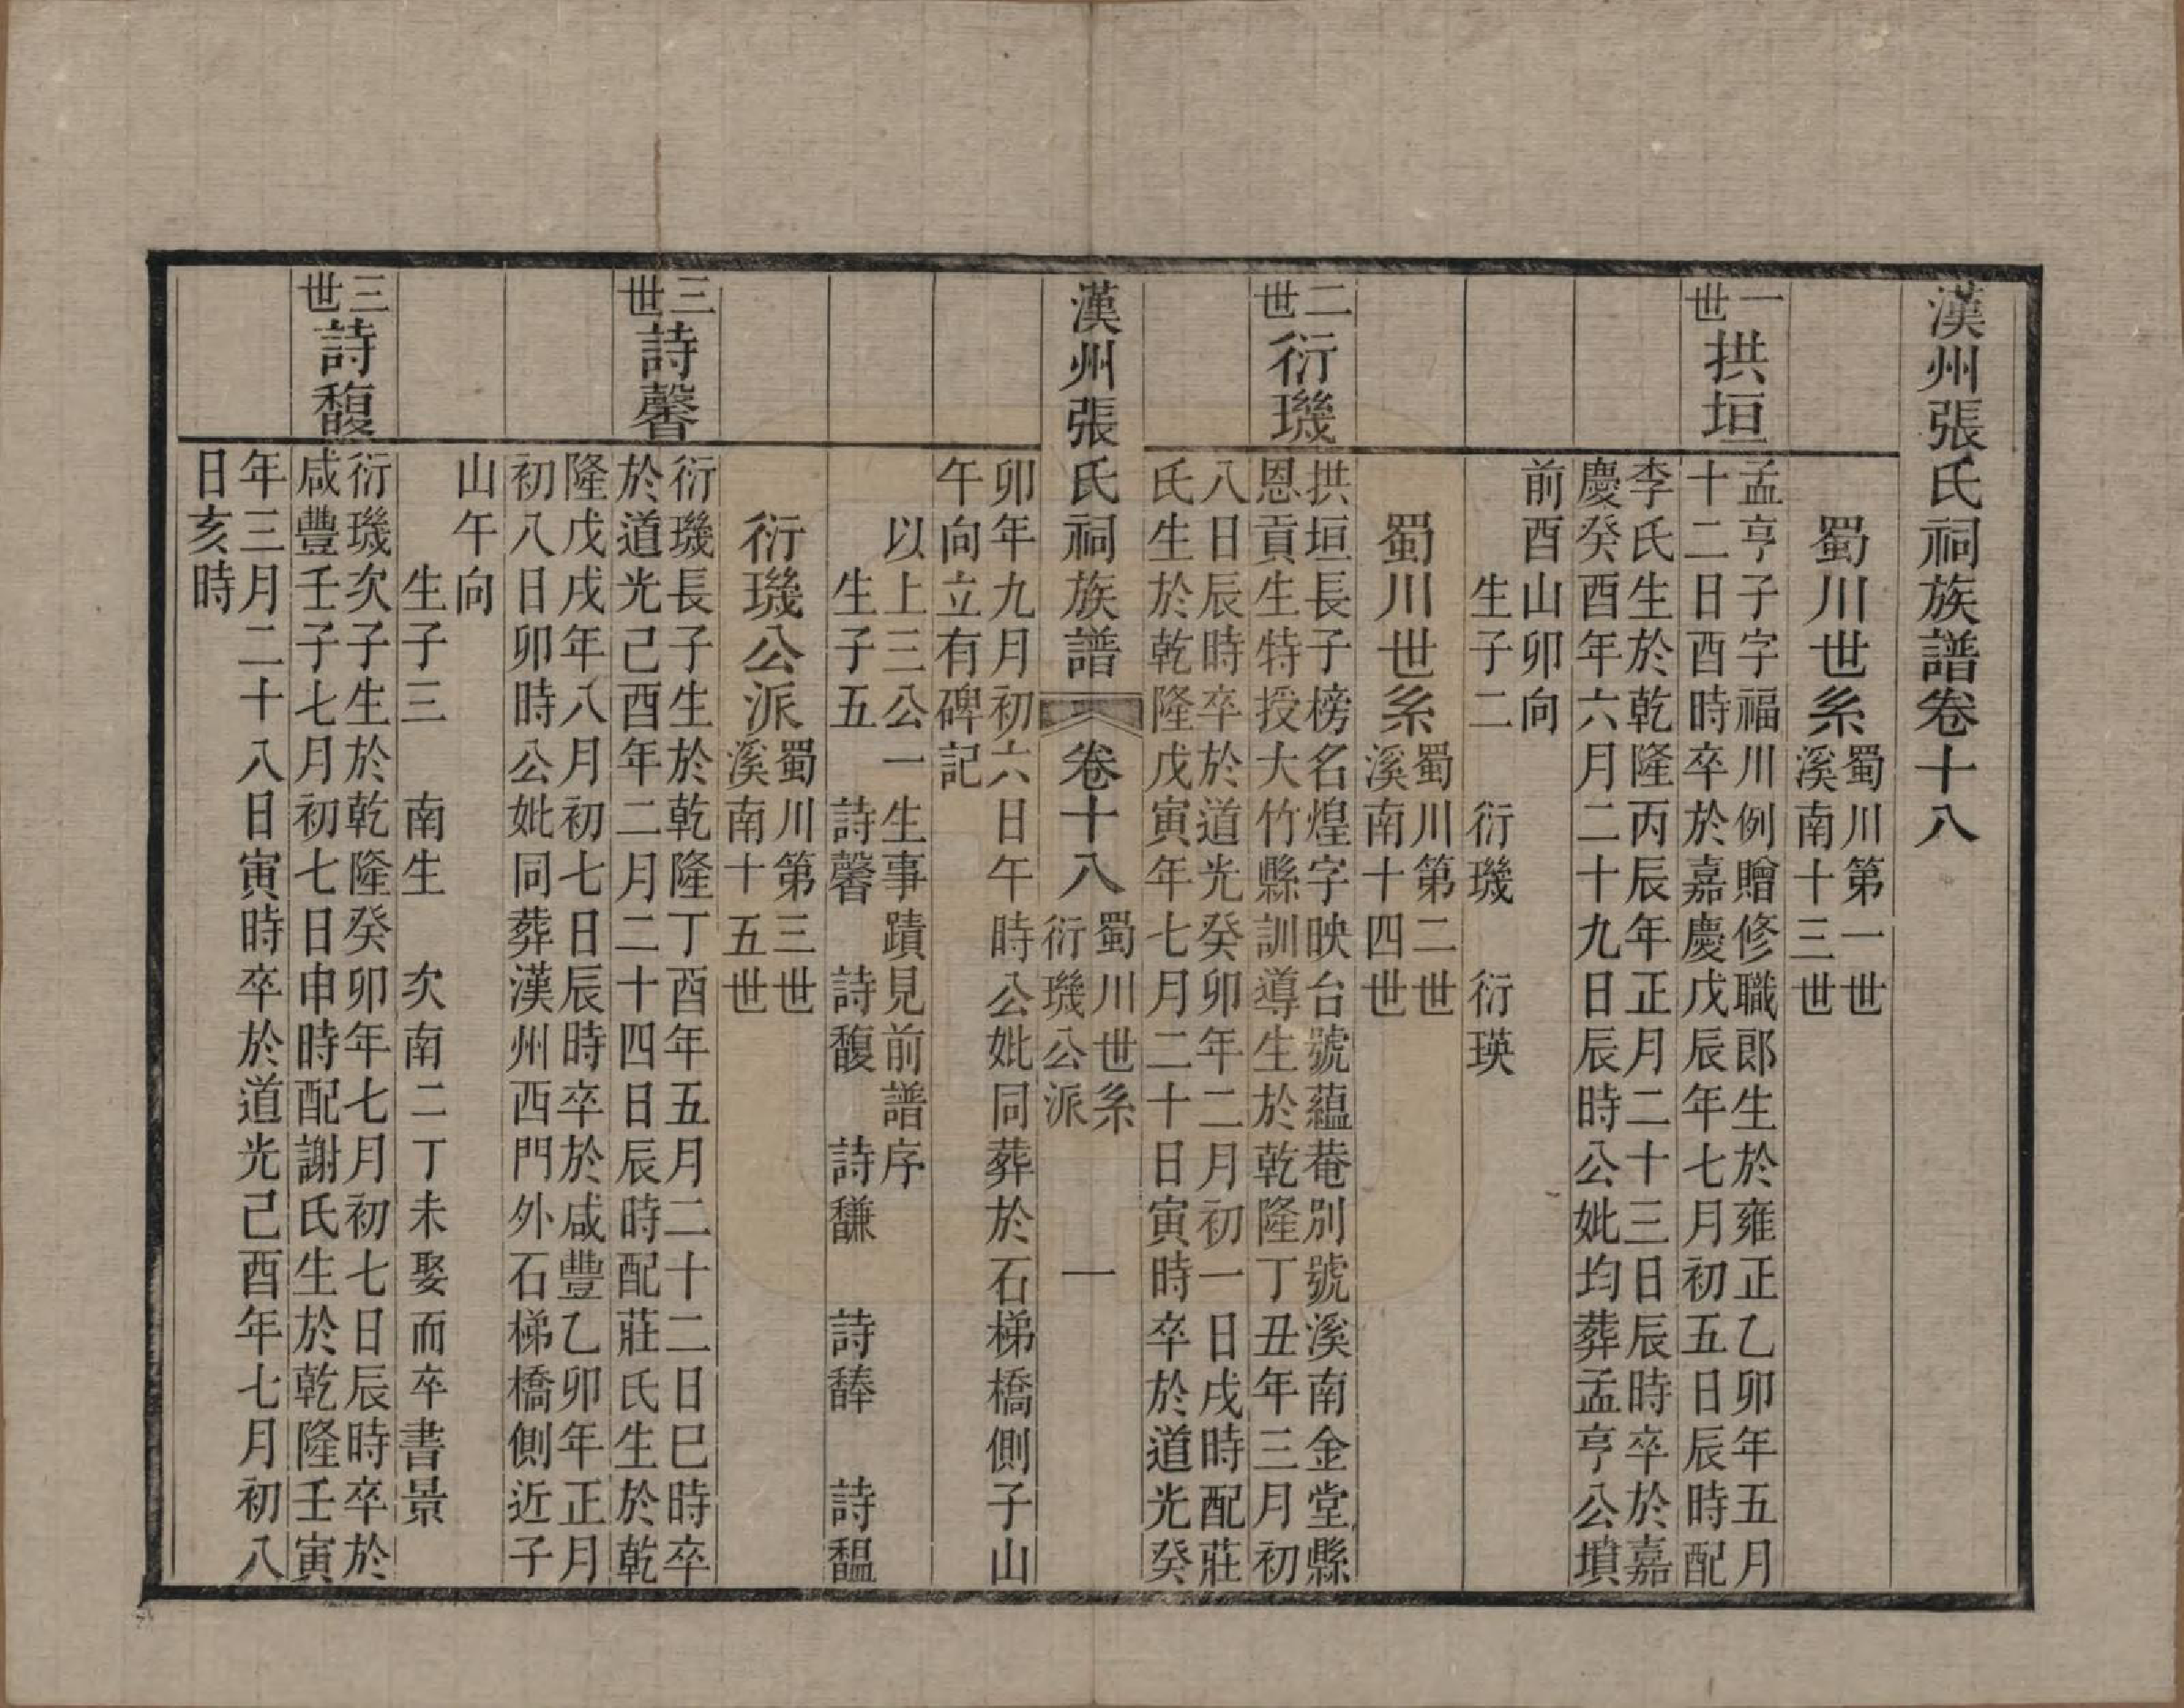 漢州張氏祠族譜卷十八
蜀川世系
蜀川第一世
溪南十三世
一世
拱垣
孟亨子字福川例贈修職郎生於雍正乙卯年五月
十二日酉時卒於嘉慶戊辰年七月初五日辰時配
李氏生於乾隆丙辰年正月二十三日辰時卒於嘉
慶癸酉年六月二十九日辰時公妣均葬孟亨公墳
前酉山卯向
生子二　衍璣　衍瑛
蜀川世系
蜀川第二世
溪南十四世
二世
衍璣
拱垣長子榜名煌字映台號蘊菴別號溪南金堂縣
恩貢生特授大竹縣訓導生於乾隆丁丑年三月初
八日辰時卒於道光癸卯年二月初一日戌時配莊
氏生於乾隆戊寅年七月二十日寅時卒於道光癸
漢州張氏祠族譜　卷十八
蜀川世系
衍璣公派
一
卯年九月初六日午時公妣同葬於石梯橋側子山
午向立有碑記
以上三公一生事蹟見前譜序
生子五　詩馨　詩馥　詩馦　詩馞　詩馧
衍璣公派
蜀川第三世
溪南十五世
三世
詩馨
衍璣長子生於乾隆丁酉年五月二十二日巳時卒
於道光己酉年二月二十四日辰時配莊氏生於乾
隆戊戌年八月初七日辰時卒於咸豐乙卯年正月
初八日卯時公妣同葬漢州西門外石梯橋側近子
山午向
生子三　南生　次南二丁未娶而卒書景
三世
詩馥
衍璣次子生於乾隆癸卯年七月初七日辰時卒於
咸豐壬子七月初七日申時配謝氏生於乾隆壬寅
年三月二十八日寅時卒於道光己酉年七月初八
日亥時